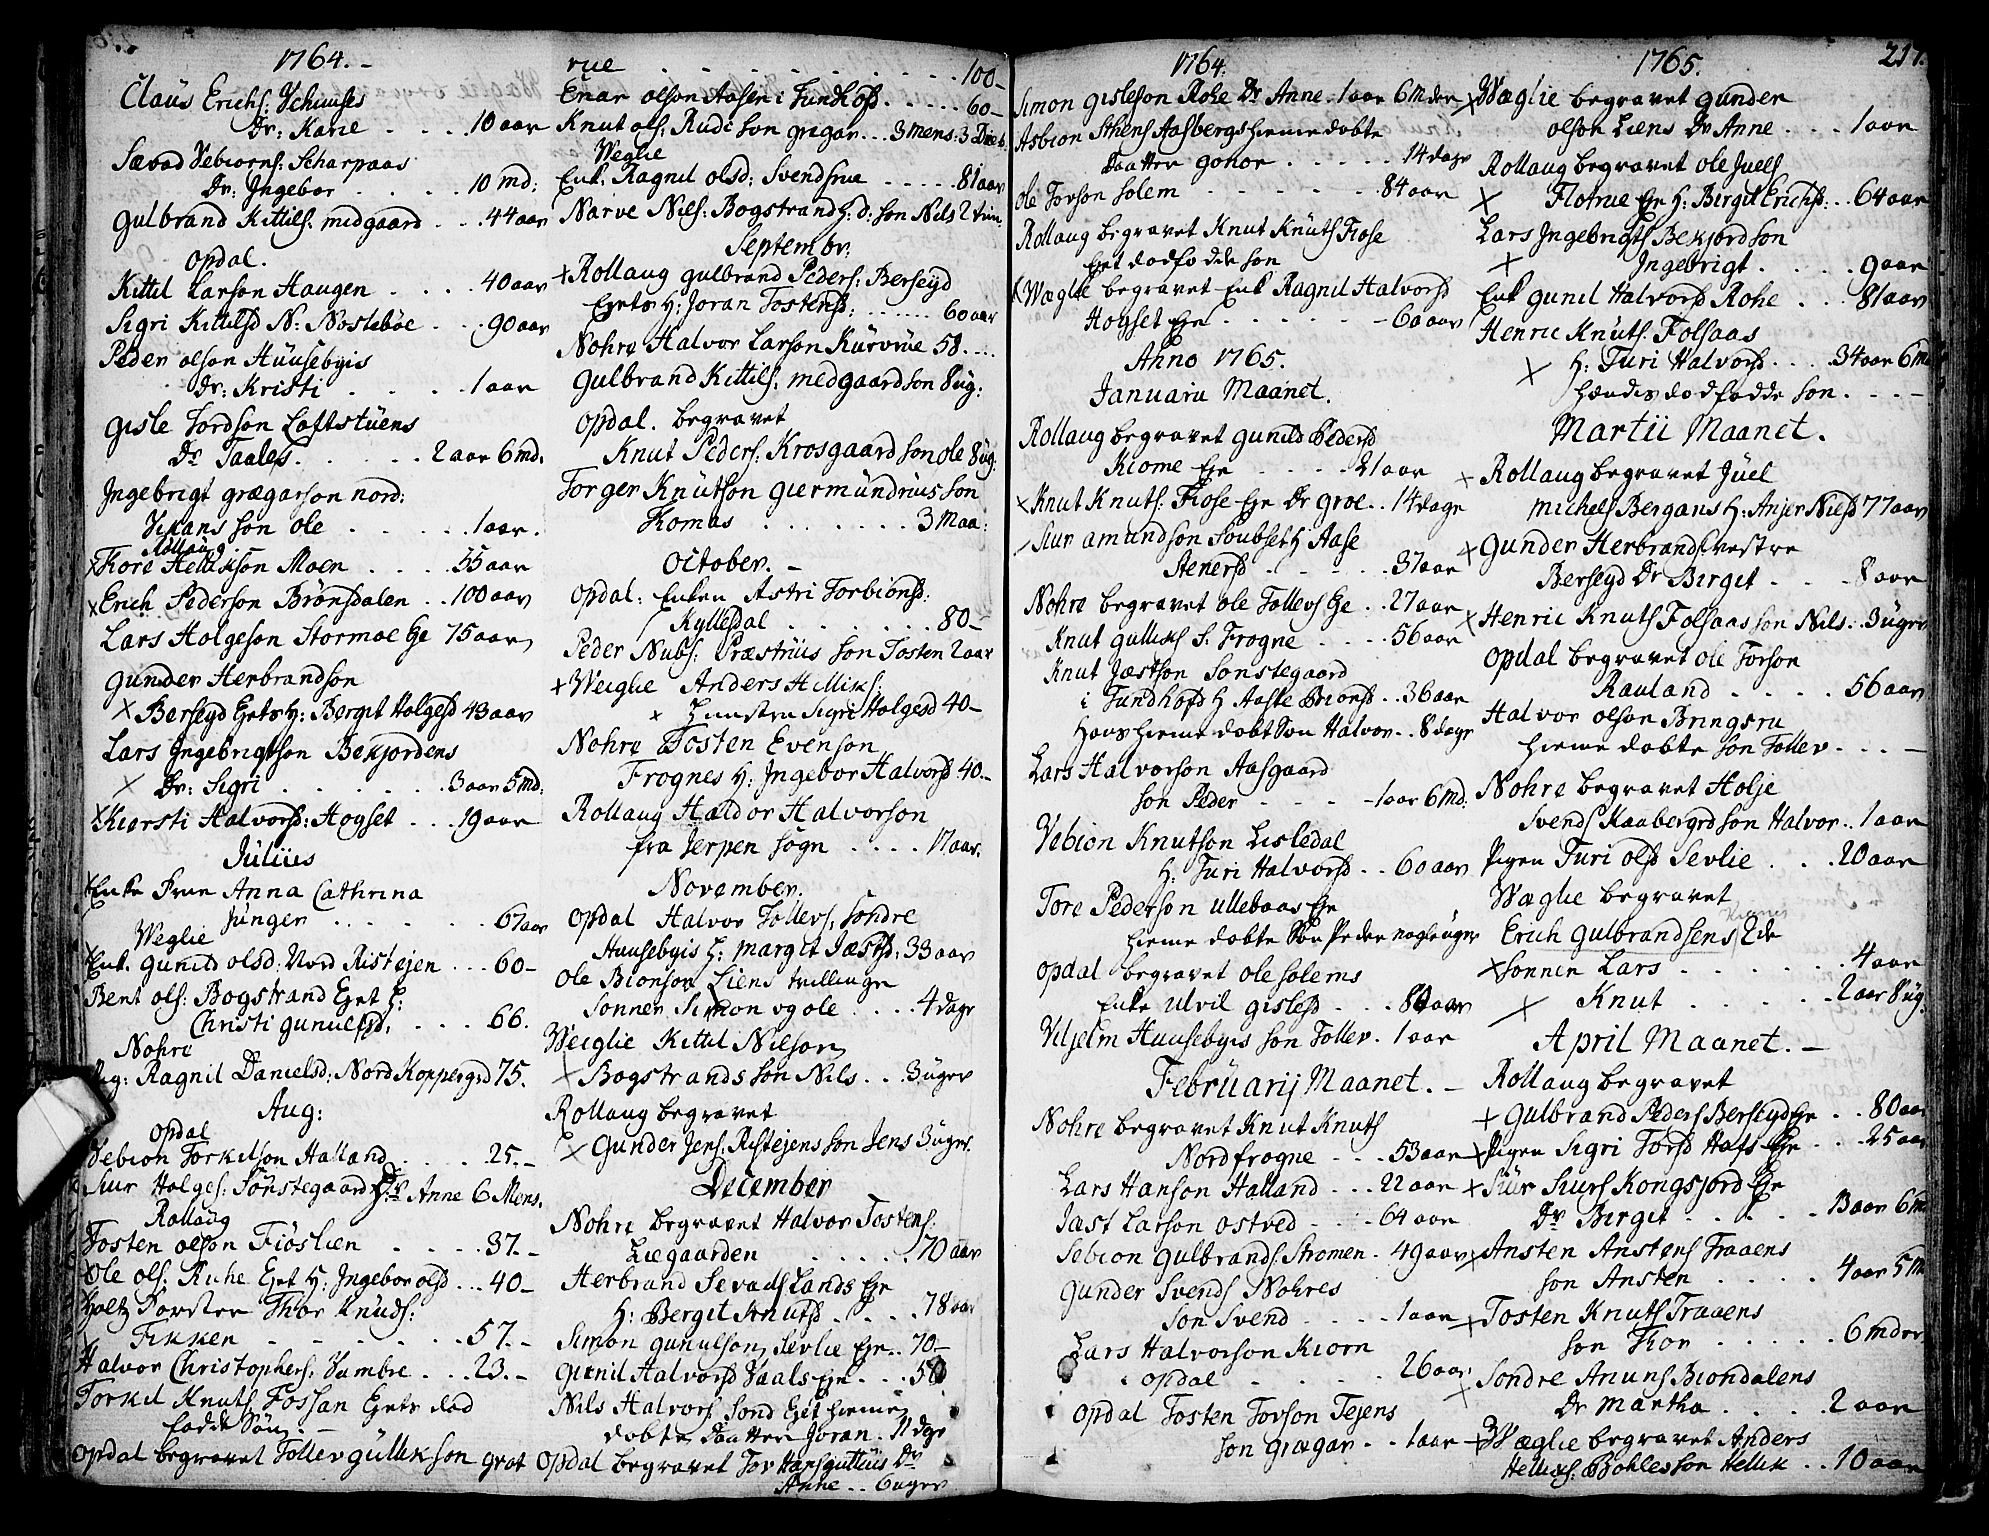 1764.
Claus Erichs: Schuuses
Dr: Karie . . . . 10 aar
Sævad Vebiorns: Scharpaas
Dr: Ingebor . . . . 10 md:
Gulbrand Kittils: midgaard . . 44 aar
Opdal.
Kittil Larson Haugen . . . . 40 aar
Sigri Kittilsd N: Nostebøe . . . 90 aar
Peder olson Huusebyis
Dr: Kristi . . . . 1 aar
Gisle Tordson Loftstuens
Dr Taales . . . . . 2 aar 6 md.
Ingebrigt grægarson nord:
Vikans son ole . . . . 1 aar.
Rollaug
Tore Helikson Moen . . . . 55 aar
Erich Pederson Brønsdalen . . 100 aar
Lars Holgeson Stormoe Ee 75 aar
Gunder Herbrandson
Berseyd Eets H: Bergit Holgesd 43 aar
Lars Ingebrigtson Bekjordens
Dr: Sigri . . . . . . . 3 aar 5 md:
Kiersti Halvorsd: Hoyset . . . 19 aar
Julius
Enke Frue Anna Cathrina
Junger . . . . . . 67 aar
Weglie
Enk. Gunild olsd: Nord Ristejen . . . 60 -
Bent ols: Bogstrand Ejet H:
Christi gunulfsd. . . . 66.
Nohre
Pig: Ragnil Danielsd: Nord Koppergrd 75.
Aug:
Opdal
Vebion Torkilson Halland . . . . 25. -
Siur Holges: Sønstegaard Dr Anne 6 Mens.
Rollaug
Tosten olson Fiøslien . . . . 37. -
Ole ols: Ruhe Eget H: Ingebor olsd . . . 40 -
Holtz Forster Thor Knuds:
Fikken . . . . . . 57. -
Halvor Christophers: Vambre . . . 23. -
Torkil Knuts Fossan Eets død
fødde Søn. -
Opdal begravet Tollev Gulliksøn grot
rue . . . . . . . . . 100 -
Enar olson Aasen i Tundhofd . . . . . 60 -
Knut ols: Rudi son gregar . . . 3 Mens: 3 Dae
Weglie
Enk. Ragnil olsd: Svendsrue . . . . . 81 aar
Narve Nils: Bogstrand H: D: son Nils 2 tim:
Septembr:
Rollaug gulbrand Peders: Berseyd
Egets H: Joran Tostensd: . . . . . . 60 aar
Nohre Halvor Larson Kurvrue 58. . . .
Gulbrand Kittils: medgaard son 8 ug:
Opdal. begravet
Knut Peders: Krosgaard son ole 8 ug:
Torger Knutson giermundrius son
Tomas . . . . . . . 3 Maa:
October. -
Opdal: Enken Astri Torbionsd:
Kyllesdal . . . . . . 80 -
Peder Nubs: Præstriis son Tosten 2 aar
Weiglie Anders Helliks:
Sigri Holgesd 40 -
Nohre Tosten Evenson
Frognes H: Ingebor Halvorsd 40. -
Rollaug Haldor Halvorson
fra Jerpen sogn . . . . 17 aar.
November.
Opdal Halvor Tollevs: sondre
Huusebyis H: Margit Jæstsd: 33 aar
Ole Bionson Liens trillinge
Sonner Simon og ole . . . . 4 dage
Weiglie Kittil Nilson
Bogstrands son Nils . . . 3 uger
Rollaug begravet
Gunder Jens: Ristejens son Jens 3 uger.
December
Nohre begravet Halvor Tostens:
Liegaarden . . . . . 70 aar
Herbrand Sevads Lands Eie
H: Bergit Knutsd . . . . . 78 aar
Simon gunulson Sevlie Eie . . 70 -
Gunil Halvorsd Vaals Eie . . . 50
Nils Halvors: sond Eget hieme
døbte Daatter Joran. 11 dage
Opdal begravet Tor Hansguttuus Dr
Anne . . 6 uger
1764.
Simon Gisleson Rohe Dr Anne . 1 aar 6 mder
Asbion Sthens Aasbergs hieme døbte
Daatter Gonor . . . . . 14 dage
Ole Torson solem . . . . . . 84 aar
Rollaug begravet Knut Knuts Fiose
Eget dødfødde søn
Weglie begravet Enk Ragnil Halvorsd
Hoyset Eie . . . . . . 60 aar
Anno 1765.
Januarii Maanet.
Rollaug begravet Gunild Pedersd
Kiome Eie . . . . 21 aar
Knut Knuts: Fiose Eie Dr Groe . . 14 dage
Siur amundson Soubset H Aase
Stenersd . . . . . 37 aar
Nohre begravet ole Tollevs Ee . . 27 aar
Knut Gulliks S. Frogne . . . . 56 aar
Knut Jæstson Sonstegaard
i Tundhofd H Aaste Bionsd . . 36 aar
Hans hieme døbt Søn Halvor . . 8 dage
Lars Halvorson Aasgaard
son Peder . . . . 1 aar 6 md:
Vebion Knutson Lisledal
H: Turi Halvorsd . . 60 aar
Tore Pederson ullebaas Eie
hieme døbte Søn Peder nogle uger
Opdal begravet ole solems
Enke Ulvil Gislesd . . . 80 aar
Viljelm Huusebyis son Tollev. 1 aar
Februarij Maanet. -
Nohre begravet Knut Knuts
Nordfrogne . . . 53 aar
Lars Hanson Halland . . . 22 aar
Jæst Larson Ostved . . . . 64 aar
Sebion Gulbrands: Stromen . 49 aar
Gunder Svends Nohres
son Svend . . . . 1 aar
Lars Halvorson Kiorn
Opdal . . . . . 26 aar.
Opdal Tosten Torson Tejens
son Grægar . . 1 aar
1765.
217.
Wæglie begravet Gunder
olson Liens Dr Anne . . . 1 aar
Rollaug begravet ole Juels
Flotrue Eie H: Birgit Erichsd: . . 64 aar
Lars Ingebrigts Bekjord son
Ingebrigt . . . . . 9 aar
Enk Gunil Halvorsd Rohe . . . 81 aar
Henric Knuts. Folsaas
H: Turi Halvorsd . . . 34 aar 6 md
hendes dødfødde son . . . -
Martii Maanet.
Rollaug begravet Juel
Michels Bergans H: Anjer Nilsd 77 aar
Gunder Herbrands Vestre
Berseyd Dr Birgit . . . 8 aar
Henric Knuts Folsaas son Nils. 3 uger
Opdal begravet ole Torson
Rauland . . . . . 56 aar
Halvor olson Bringsru
hieme døbte son Tollev . . . -
Nohre begravet Holje
Svends Kaabergrd son Halvor . . 1 aar
Pigen Turi olsd Sevlie . . . 20 aar
Wæglie begravet
Erich Gulbrandsens 2de
sonnen Lars . . . . . . 4 aar
Knut . . . . . . 2 aar 8 ug:
April Maanet. -
Rollaug begravet
Gulbrand Peders Berseyd Eie . . 80 aar
Pigen Sigri Torsd Hofs Eie . . . 25 aar
Siur Siurs Kongsjord Eie
Dr Birgit . . . . . 13 aar 6 m
Ansten Anstens Traaens
son Ansten . . . . . 4 aar 5 m
Tosten Knuts Traaens
son Tor . . . . . 6 mder
Sondre Anuns Biondalens
Dr Martha . . . . 2 aar
Wæglie begravet Anders
Helliks: Bohles son Hellik . . 10 aar